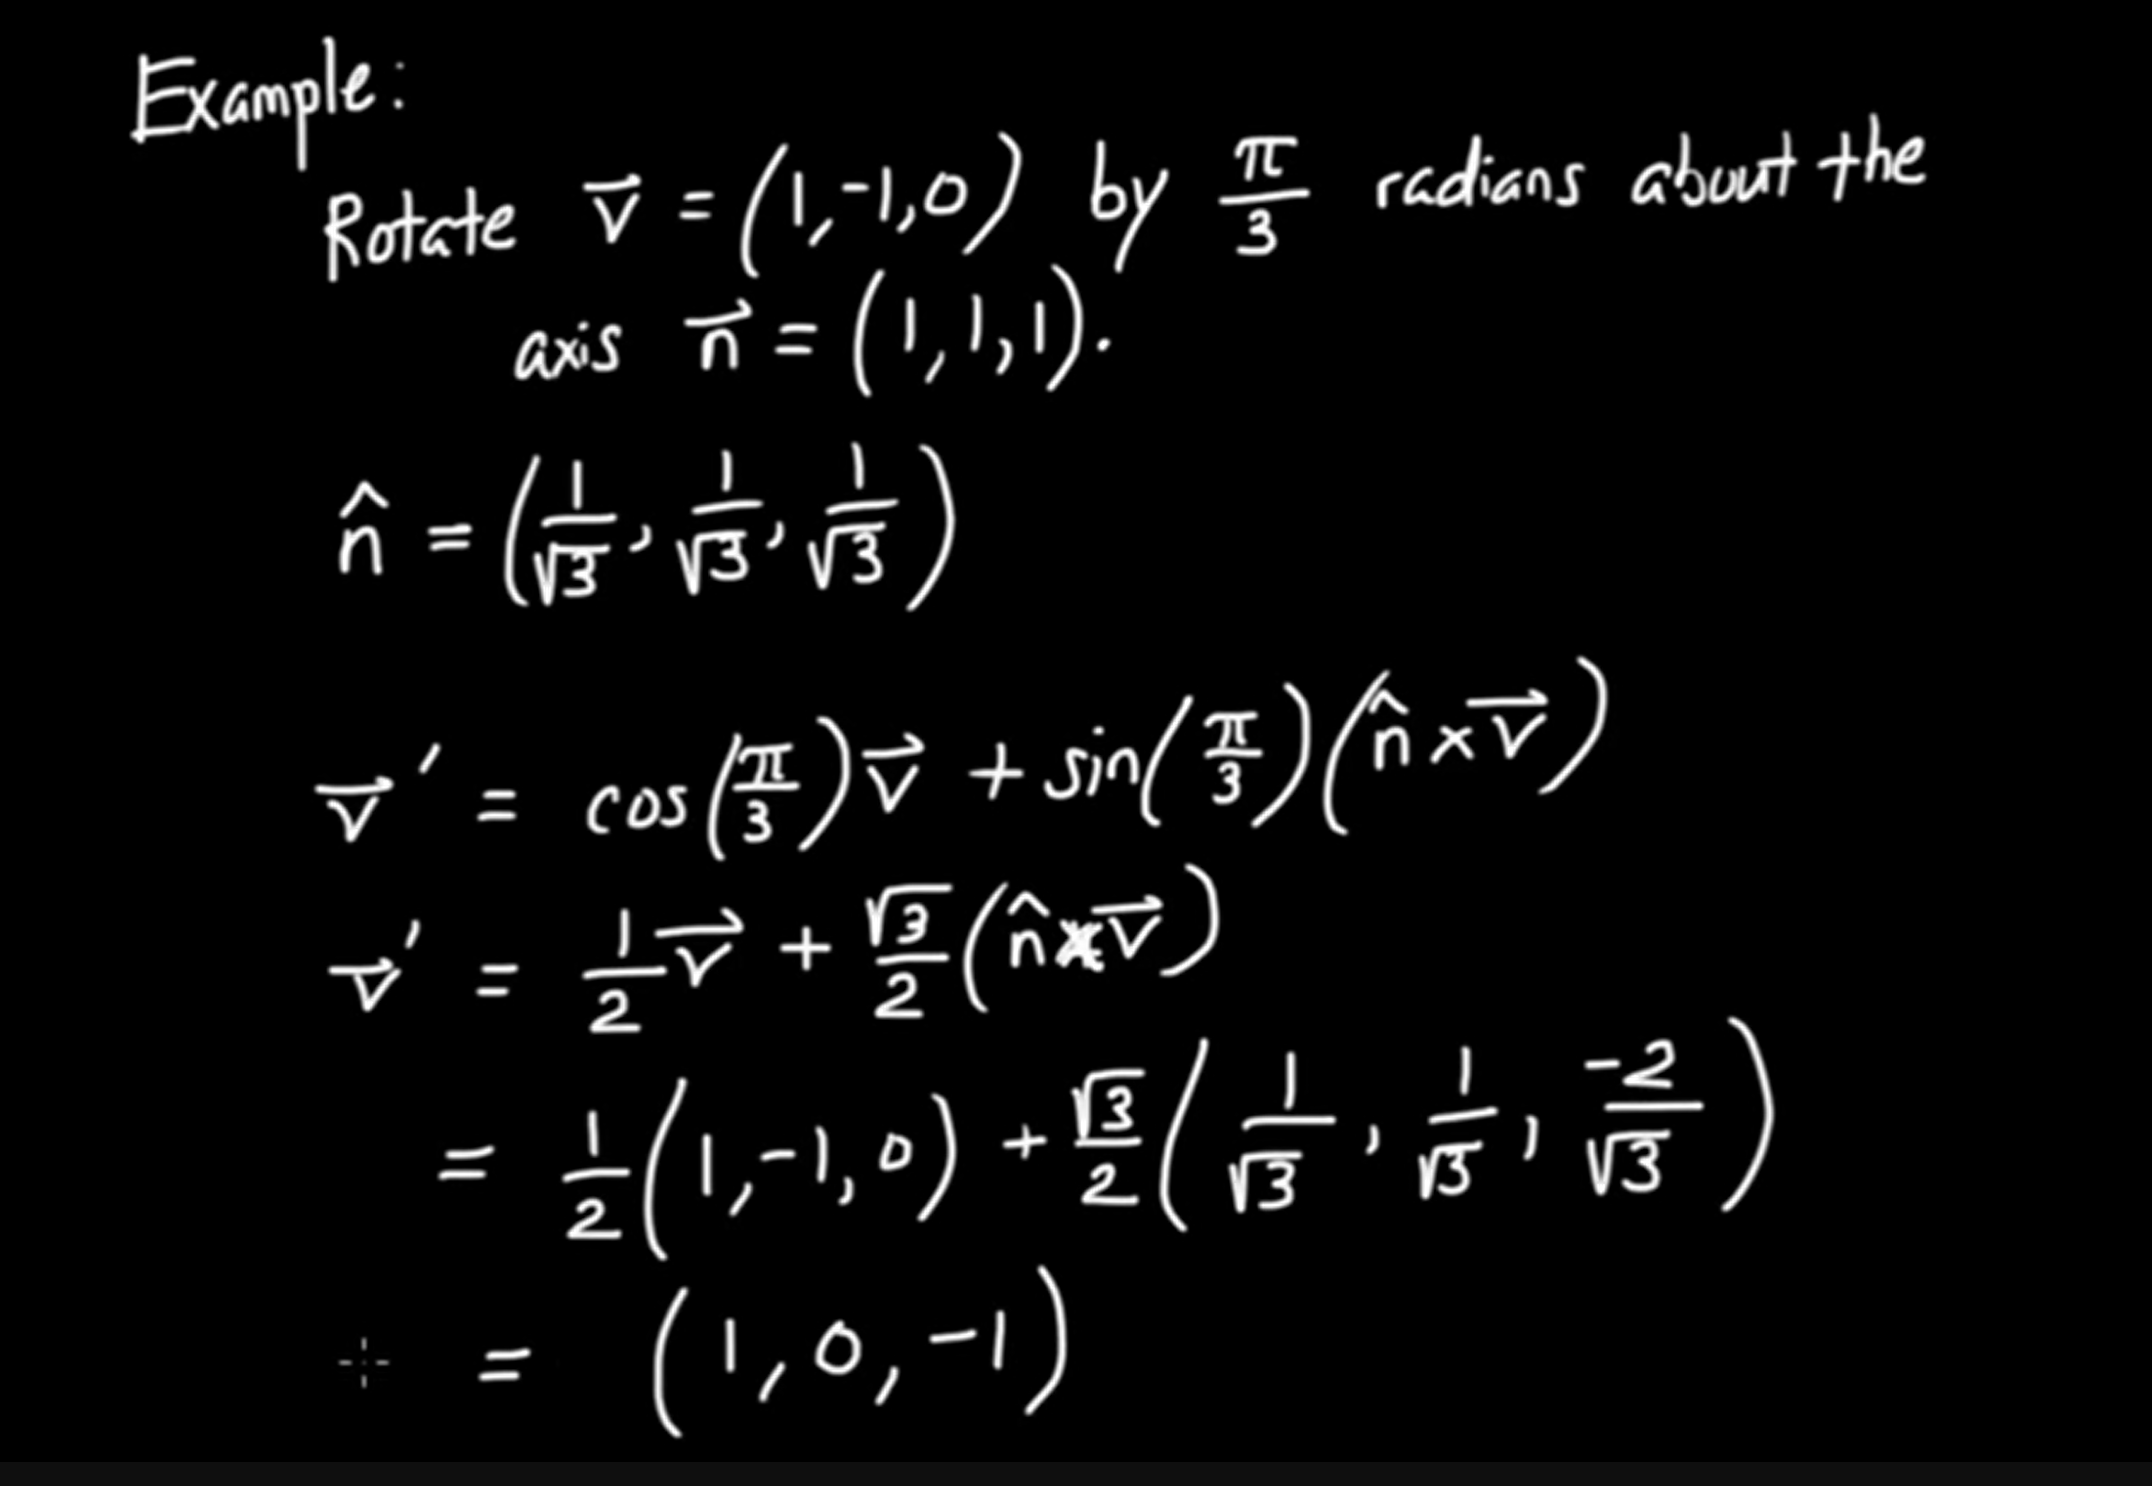 Example:
Rotate v⃗ = (1,-1,0) by π/3 radians about the
axis n⃗ = (1,1,1).
n̂ = (1/√3, 1/√3, 1/√3)
v⃗′ = cos(π/3)v⃗ + sin(π/3)(n̂×v⃗)
v⃗′ = 1/2 v⃗ + √3/2 (n̂×v⃗)
= 1/2 (1,-1,0) + √3/2 (1/√3, 1/√3, -2/√3)
= (1,0,-1)